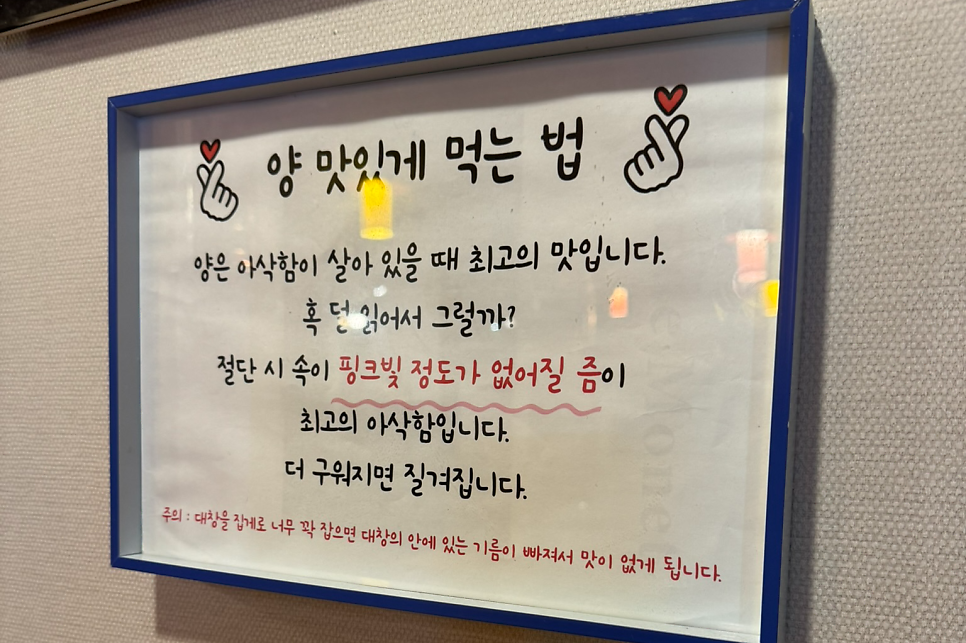 양 맛있게 먹는 법
양은 아삭함이 살아 있을 때 최고의 맛입니다.
혹 덜 읽어서 그럴까?
절단 시 속이 핑크빛 정도가 없어질 즘이
최고의 아삭함입니다.
더 구워지면 질겨집니다.
주의 : 대창을 집게로 너무 꽉 잡으면 대창의 안에 있는 기름이 빠져서 맛이 없게 됩니다.